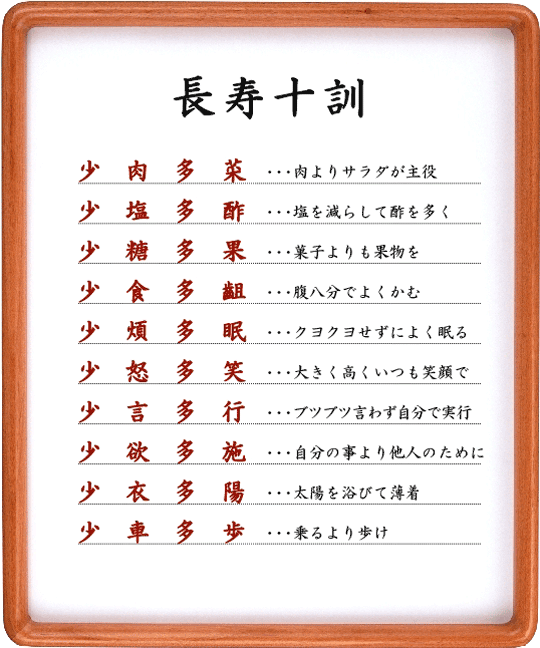 長寿十訓
少肉多菜 ･･･肉よりサラダが主役
少塩多酢 ･･･塩を減らして酢を多く
少糖多果 ･･･菓子よりも果物を
少食多齟 ･･･腹八分でよくかむ
少煩多眠 ･･･クヨクヨせずによく眠る
少怒多笑 ･･･大きく高くいつも笑顔で
少言多行 ･･･ブツブツ言わず自分で実行
少欲多施 ･･･自分の事より他人のために
少衣多陽 ･･･太陽を浴びて薄着
少車多歩 ･･･乗るより歩け